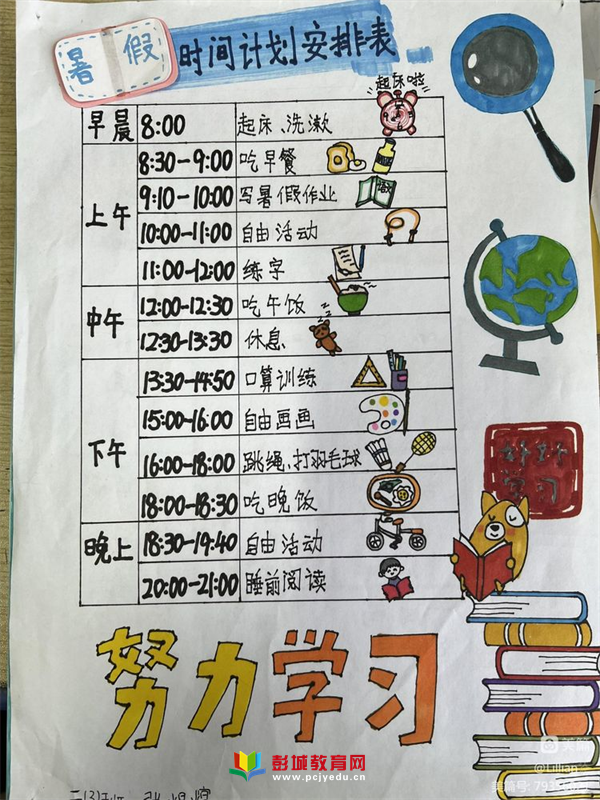 暑假 时间计划安排表
起床啦
早晨 8:00 起床、洗漱
上午 8:30-9:00 吃早餐
9:10-10:00 写暑假作业
10:00-11:00 自由活动
11:00-12:00 练字
中午 12:00-12:30 吃午饭
12:30-13:30 休息
下午 13:30-14:50 口算训练
15:00-16:00 自由画画
16:00-18:00 跳绳、打羽毛球
18:00-18:30 吃晚饭
晚上 18:30-19:40 自由活动
20:00-21:00 睡前阅读
好好
学习
努力学习
彭城教育网
www.pcjyedu.cn
美篇
@Lillian
美篇号: